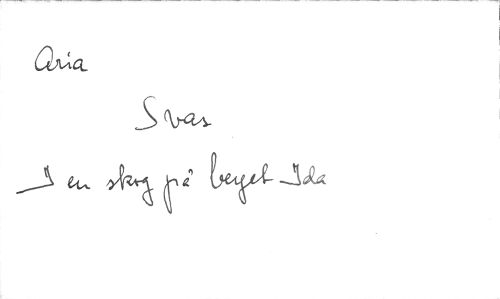 Aria
Svas
I en skog på berget Ida